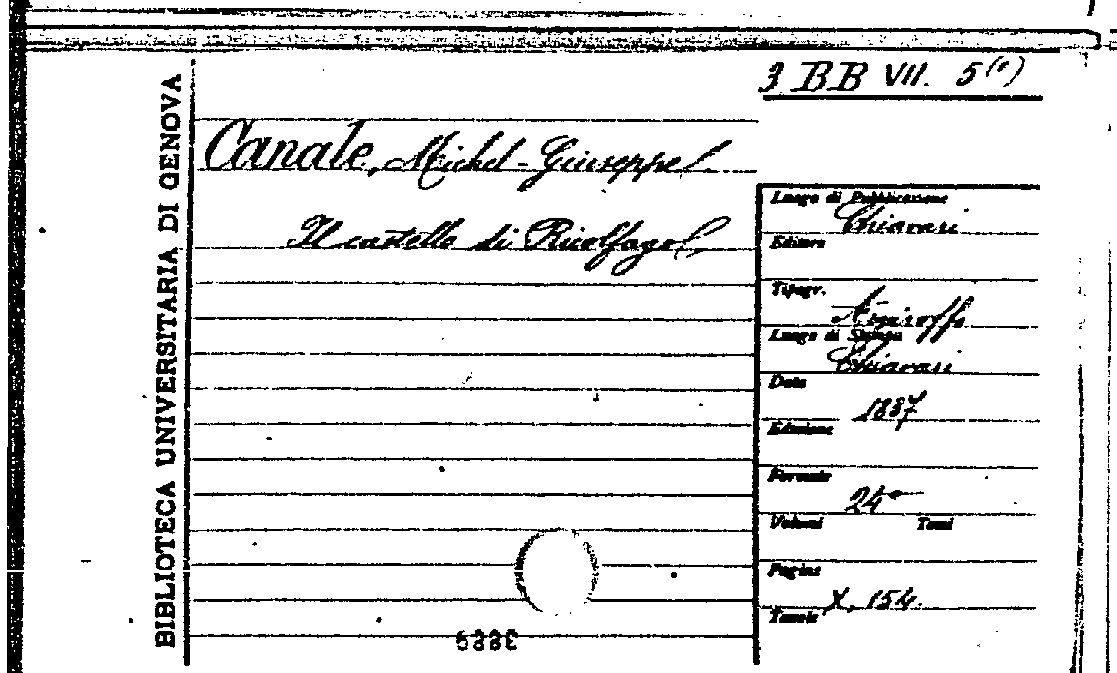 3 BB VII. 5(1)
BIBLIOTECA UNIVERSITARIA DI GENOVA
Canale, Michel-Giuseppe
Il castello di Ricolfago
Luogo di Pubblicazione
Chiavari
Editore
Tipogr.
Luogo di Stampa
Chiavari
Data
1837
Edizione
Formato
24°
Volumi Tomi
Pagine
X, 154.
Tavole